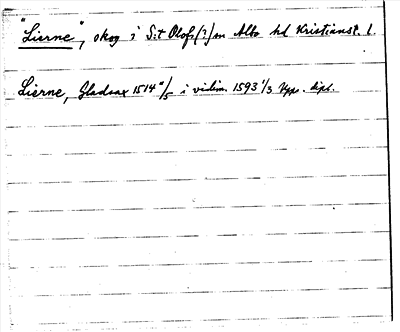 "Lierne", skog i S:t Olofs(?) sn Albo hd Kristianst. l.
Lierne, Gladsax 1514 11/5 i vidim. 1593 1/3 Upps. dipl.